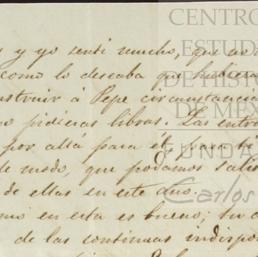 y yo sentí mucho, que no
como lo deseaba que hubiera
instruir á Pepe circunstancia
no pidieras libras. Las entre
por allá para él, para
de modo, que podamos satis
de ellas en este año.
en esta es bueno; tu
de las continuas indispo
CENTRO
ESTUD
DE HISTO
DE M
FUNDA
Carlos